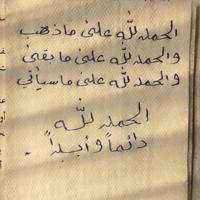 الحمد لله على ما ذهب
والحمد لله على ما بقى
والحمد لله على ما سيأتي
الحمد لله
دائماً وأبداً .